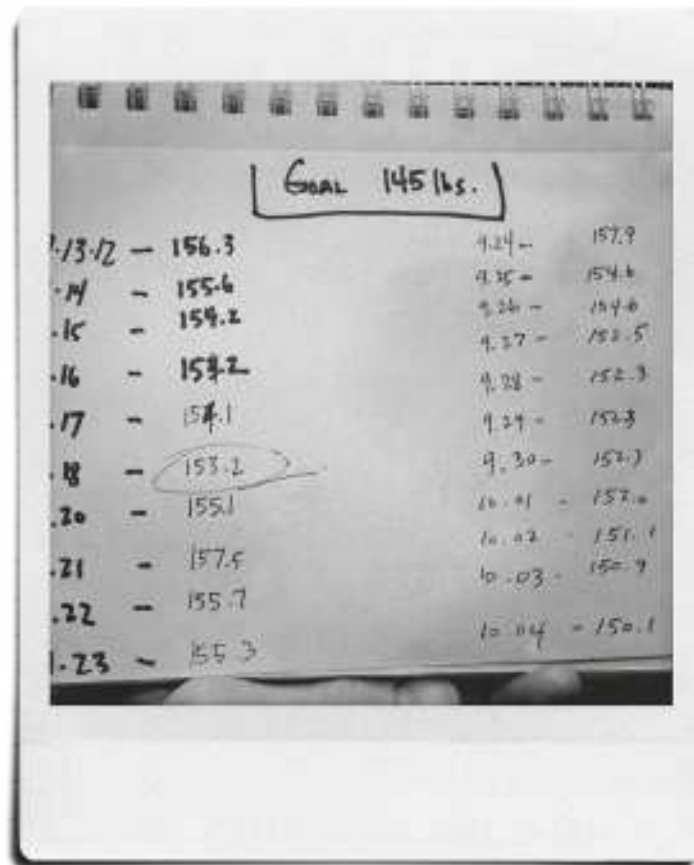 GOAL 145 lbs.
.13.12 - 156.3
.14 - 155.6
.15 - 154.2
.16 - 154.2
.17 - 154.1
.18 - 153.2
.20 - 155.1
.21 - 157.5
.22 - 155.7
.23 - 155.3
9.24 -
9.25 - 154.6
9.26 - 154.6
9.27 - 152.5
9.28 - 152.3
9.29 - 152.3
9.30 -
10.01 - 152.0
10.02 - 151.1
10.03 - 150.9
10.04 - 150.1